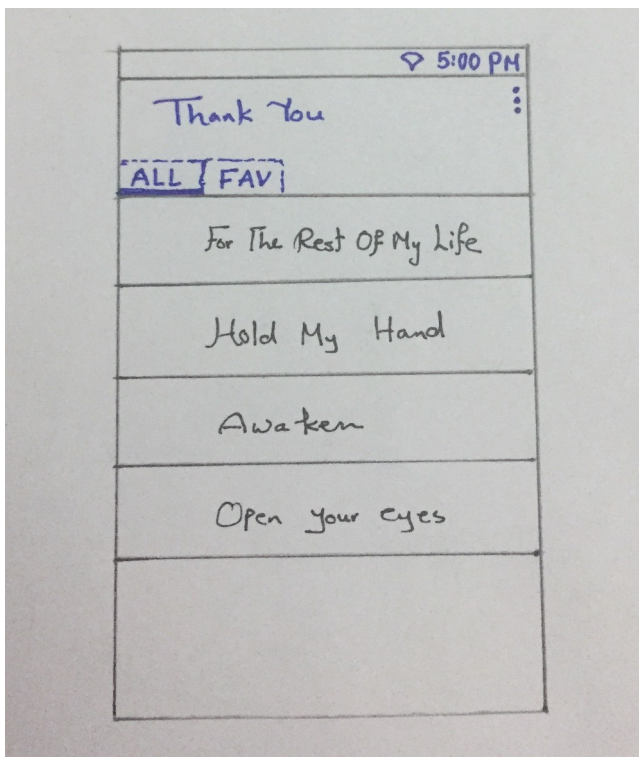 5:00 PM
Thank You
ALL FAV
For The Rest Of My Life
Hold My Hand
Awaken
Open your eyes